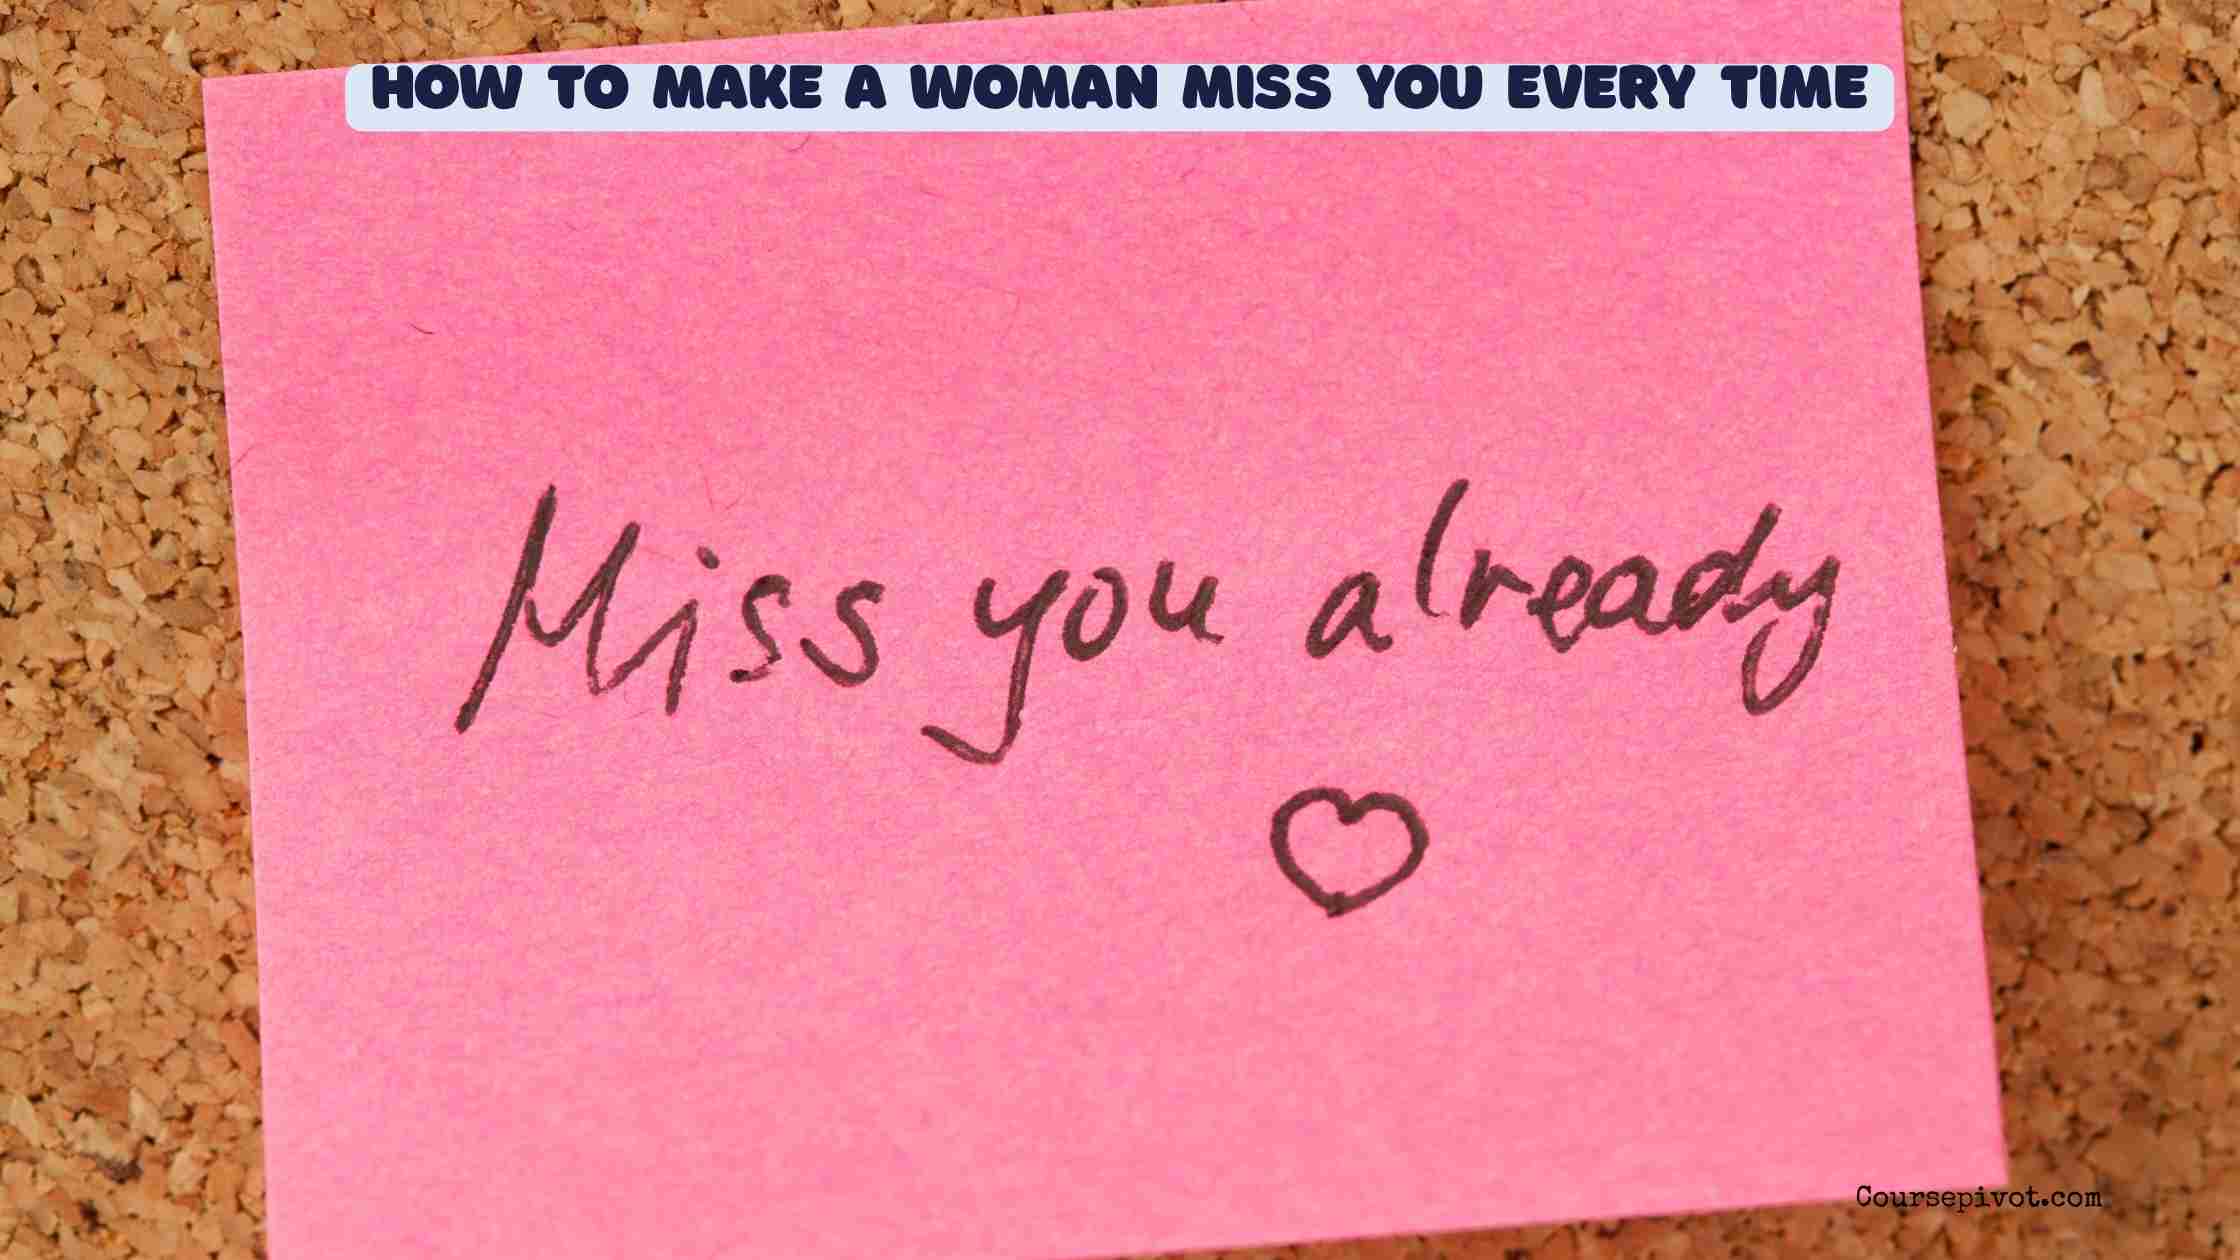 HOW TO MAKE A WOMAN MISS YOU EVERY TIME
Miss you already
Coursepivot.com